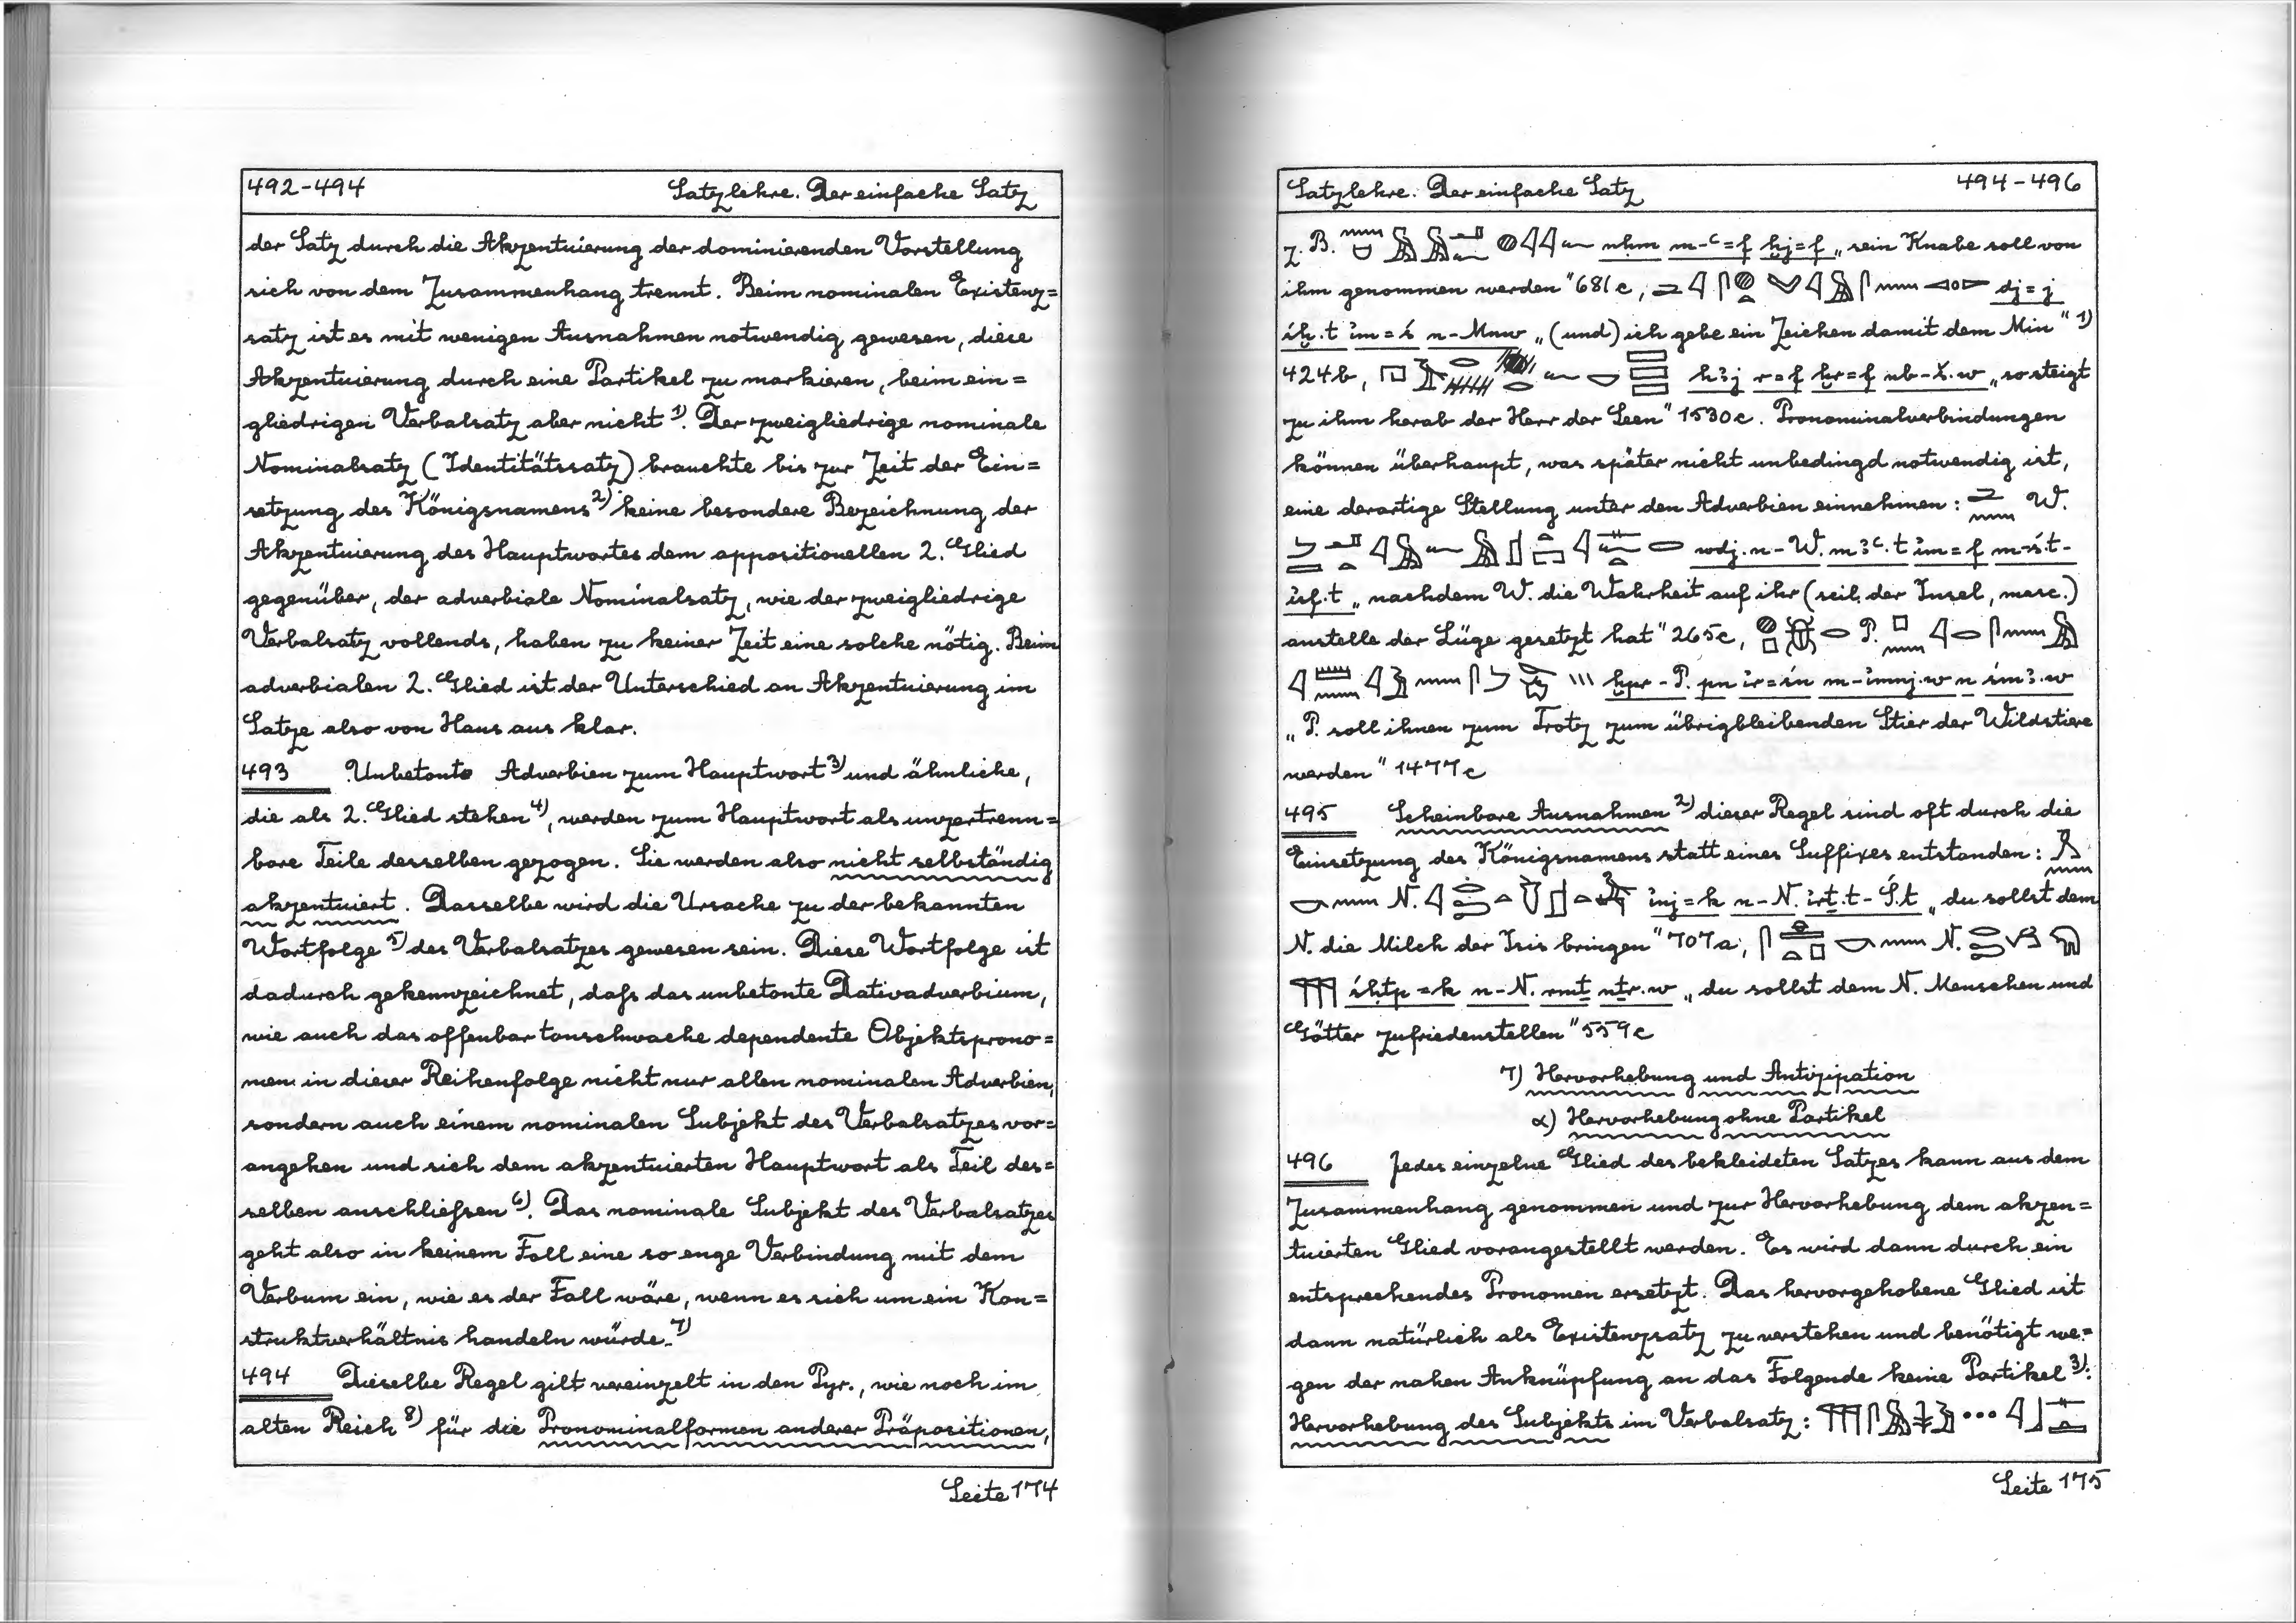 492-494 Satzlehre. Der einfache Satz
der Satz durch die Akzentuierung der dominierenden Vorstellung
sich von dem Zusammenhang trennt. Beim nominalen Existenz=
satz ist es mit wenigen Ausnahmen notwendig gewesen, diese
Akzentuierung durch eine Partikel zu markieren, beim ein=
gliedrigen Verbalsatz aber nicht 1). Der zweigliedrige nominale
Nominalsatz (Identitätssatz) brauchte bis zur Zeit der Ein=
setzung des Königsnamens 2) keine besondere Bezeichnung der
Akzentuierung des Hauptwortes dem appositionellen 2. Glied
gegenüber, der adverbiale Nominalsatz, wie der zweigliedrige
Verbalsatz vollends, haben zu keiner Zeit eine solche nötig. Beim
adverbialen 2. Glied ist der Unterschied an Akzentuierung im
Satze also von Haus aus klar.
493 Unbetonte Adverbien zum Hauptwort 3) und ähnliche,
die als 2. Glied stehen 4), werden zum Hauptwort als unzertrenn=
bare Teile desselben gezogen. Sie werden also nicht selbständig
akzentuiert. Dasselbe wird die Ursache zu der bekannten
Wortfolge 5) des Verbalsatzes gewesen sein. Diese Wortfolge ist
dadurch gekennzeichnet, daſs das unbetonte Dativadverbium,
wie auch das offenbar tonschwache dependente Objektsprono=
men in dieser Reihenfolge nicht nur allen nominalen Adverbien,
sondern auch einem nominalen Subjekt des Verbalsatzes vor=
angehen und sich dem akzentuierten Hauptwort als Teil des=
selben anschlieſsen 6). Das nominale Subjekt des Verbalsatzes
geht also in keinem Fall eine so enge Verbindung mit dem
Verbum ein, wie es der Fall wäre, wenn es sich um ein Kon=
struktverhältnis handeln würde. 7)
494 Dieselbe Regel gilt vereinzelt in den Pyr., wie noch im
alten Reich 8) für die Pronominalformen anderer Präpositionen,
Seite 174
Satzlehre. Der einfache Satz 494-496
z. B. nḥm m-ʿ=f ḫj=f „sein Knabe soll von
ihm genommen werden" 681c, dj=j
íḫ.t ỉm=ś n-Mnw „(und) ich gebe ein Zeichen damit dem Min" 1)
424b, hꜣj r=f ḫr=f nb-š.w „so steigt
zu ihm herab der Herr der Seen" 1530c. Pronominalverbindungen
können überhaupt, was später nicht unbedingd notwendig ist,
eine derartige Stellung unter den Adverbien einnehmen: W.
wdj.n-W. mꜣʿ.t ỉm=f m-ś.t-
ỉsf.t „nachdem W. die Wahrheit auf ihr (scil. der Insel, masc.)
anstelle der Lüge gesetzt hat" 265c, P.
ḫpr-P. pn ỉr=śn m-ỉmnj.w n śmꜣ.w
„P. soll ihnen zum Trotz zum übrigbleibenden Stier der Wildstiere
werden" 1477c
495 Scheinbare Ausnahmen 2) dieser Regel sind oft durch die
Einsetzung des Königsnamens statt eines Suffixes entstanden:
N. ỉnj=k n-N. ỉrṯ.t-Ś.t „du sollst dem
N. die Milch der Isis bringen" 707a, N.
śḥtp=k n-N. rmṯ nṯr.w „du sollst dem N. Menschen und
Götter zufriedenstellen" 559c
7) Hervorhebung und Antizipation
α) Hervorhebung ohne Partikel
496 Jedes einzelne Glied des bekleideten Satzes kann aus dem
Zusammenhang genommen und zur Hervorhebung dem akzen=
tuierten Glied vorangestellt werden. Es wird dann durch ein
entsprechendes Pronomen ersetzt. Das hervorgehobene Glied ist
dann natürlich als Existenzsatz zu verstehen und benötigt we=
gen der nahen Anknüpfung an das Folgende keine Partikel 3):
Hervorhebung des Subjekts im Verbalsatz:
Seite 175